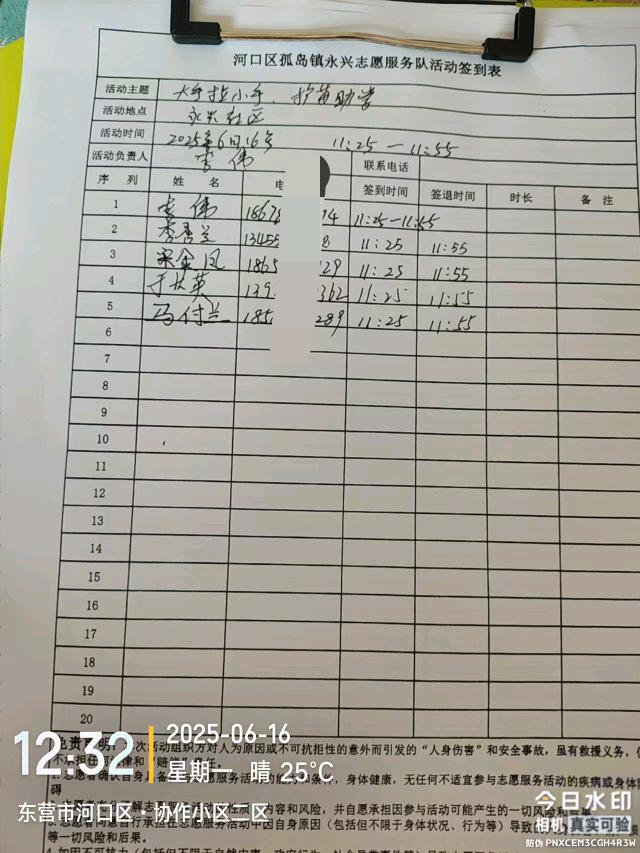 河口区孤岛镇永兴志愿服务队活动签到表
活动主题 大手拉小手、护苗助学
活动地点 永兴社区
活动时间 2025年6月16号 11:25 — 11:55
活动负责人 李伟 联系电话
序 列 姓 名 电 签到时间 签退时间 时长 备 注
1 李伟 1867 74 11:25—11:55
2 李香兰 13455 8 11:25 11:55
3 宋金凤 1865 29 11:25 11:55
4 于长英 139 362 11:25 11:55
5 马付兰 185 289 11:25 11:55
6
7
8
9
10
11
12
13
14
15
16
17
18
19
20
免责声明: 次活动组织方对人为原因或不可抗拒性的意外而引发的“人身伤害”和安全事故,虽有救援义务,
不承担任 律和 赔
志愿者确 自身具备 与志愿服务活动的能 和条件,身体健康,无任何不适宜参与志愿服务活动的疾病或身体
得
解志 质 内容和风险,并自愿承担因参与活动可能产生的一切风险和
行承担在志愿服务活动中因自身原因(包括但不限于身体状况、行为等)导致
等一切风险和后果。
12:32
2025-06-16
星期一 晴 25℃
东营市河口区·协作小区二区
今日水印
相机 真实可验
防伪 PNXCEM3CGH4R3W